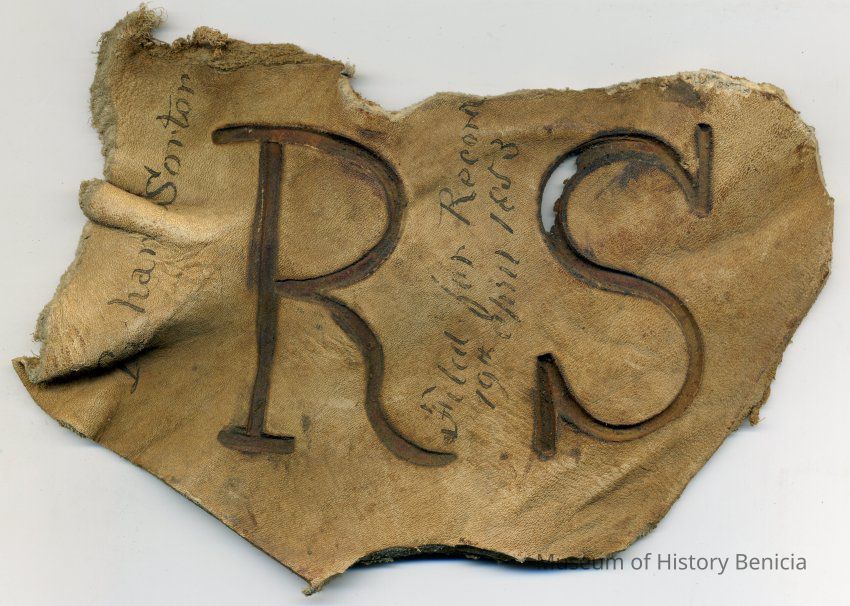 Sorton
RS
Filed for Record
19th April 1853
Museum of History Benicia